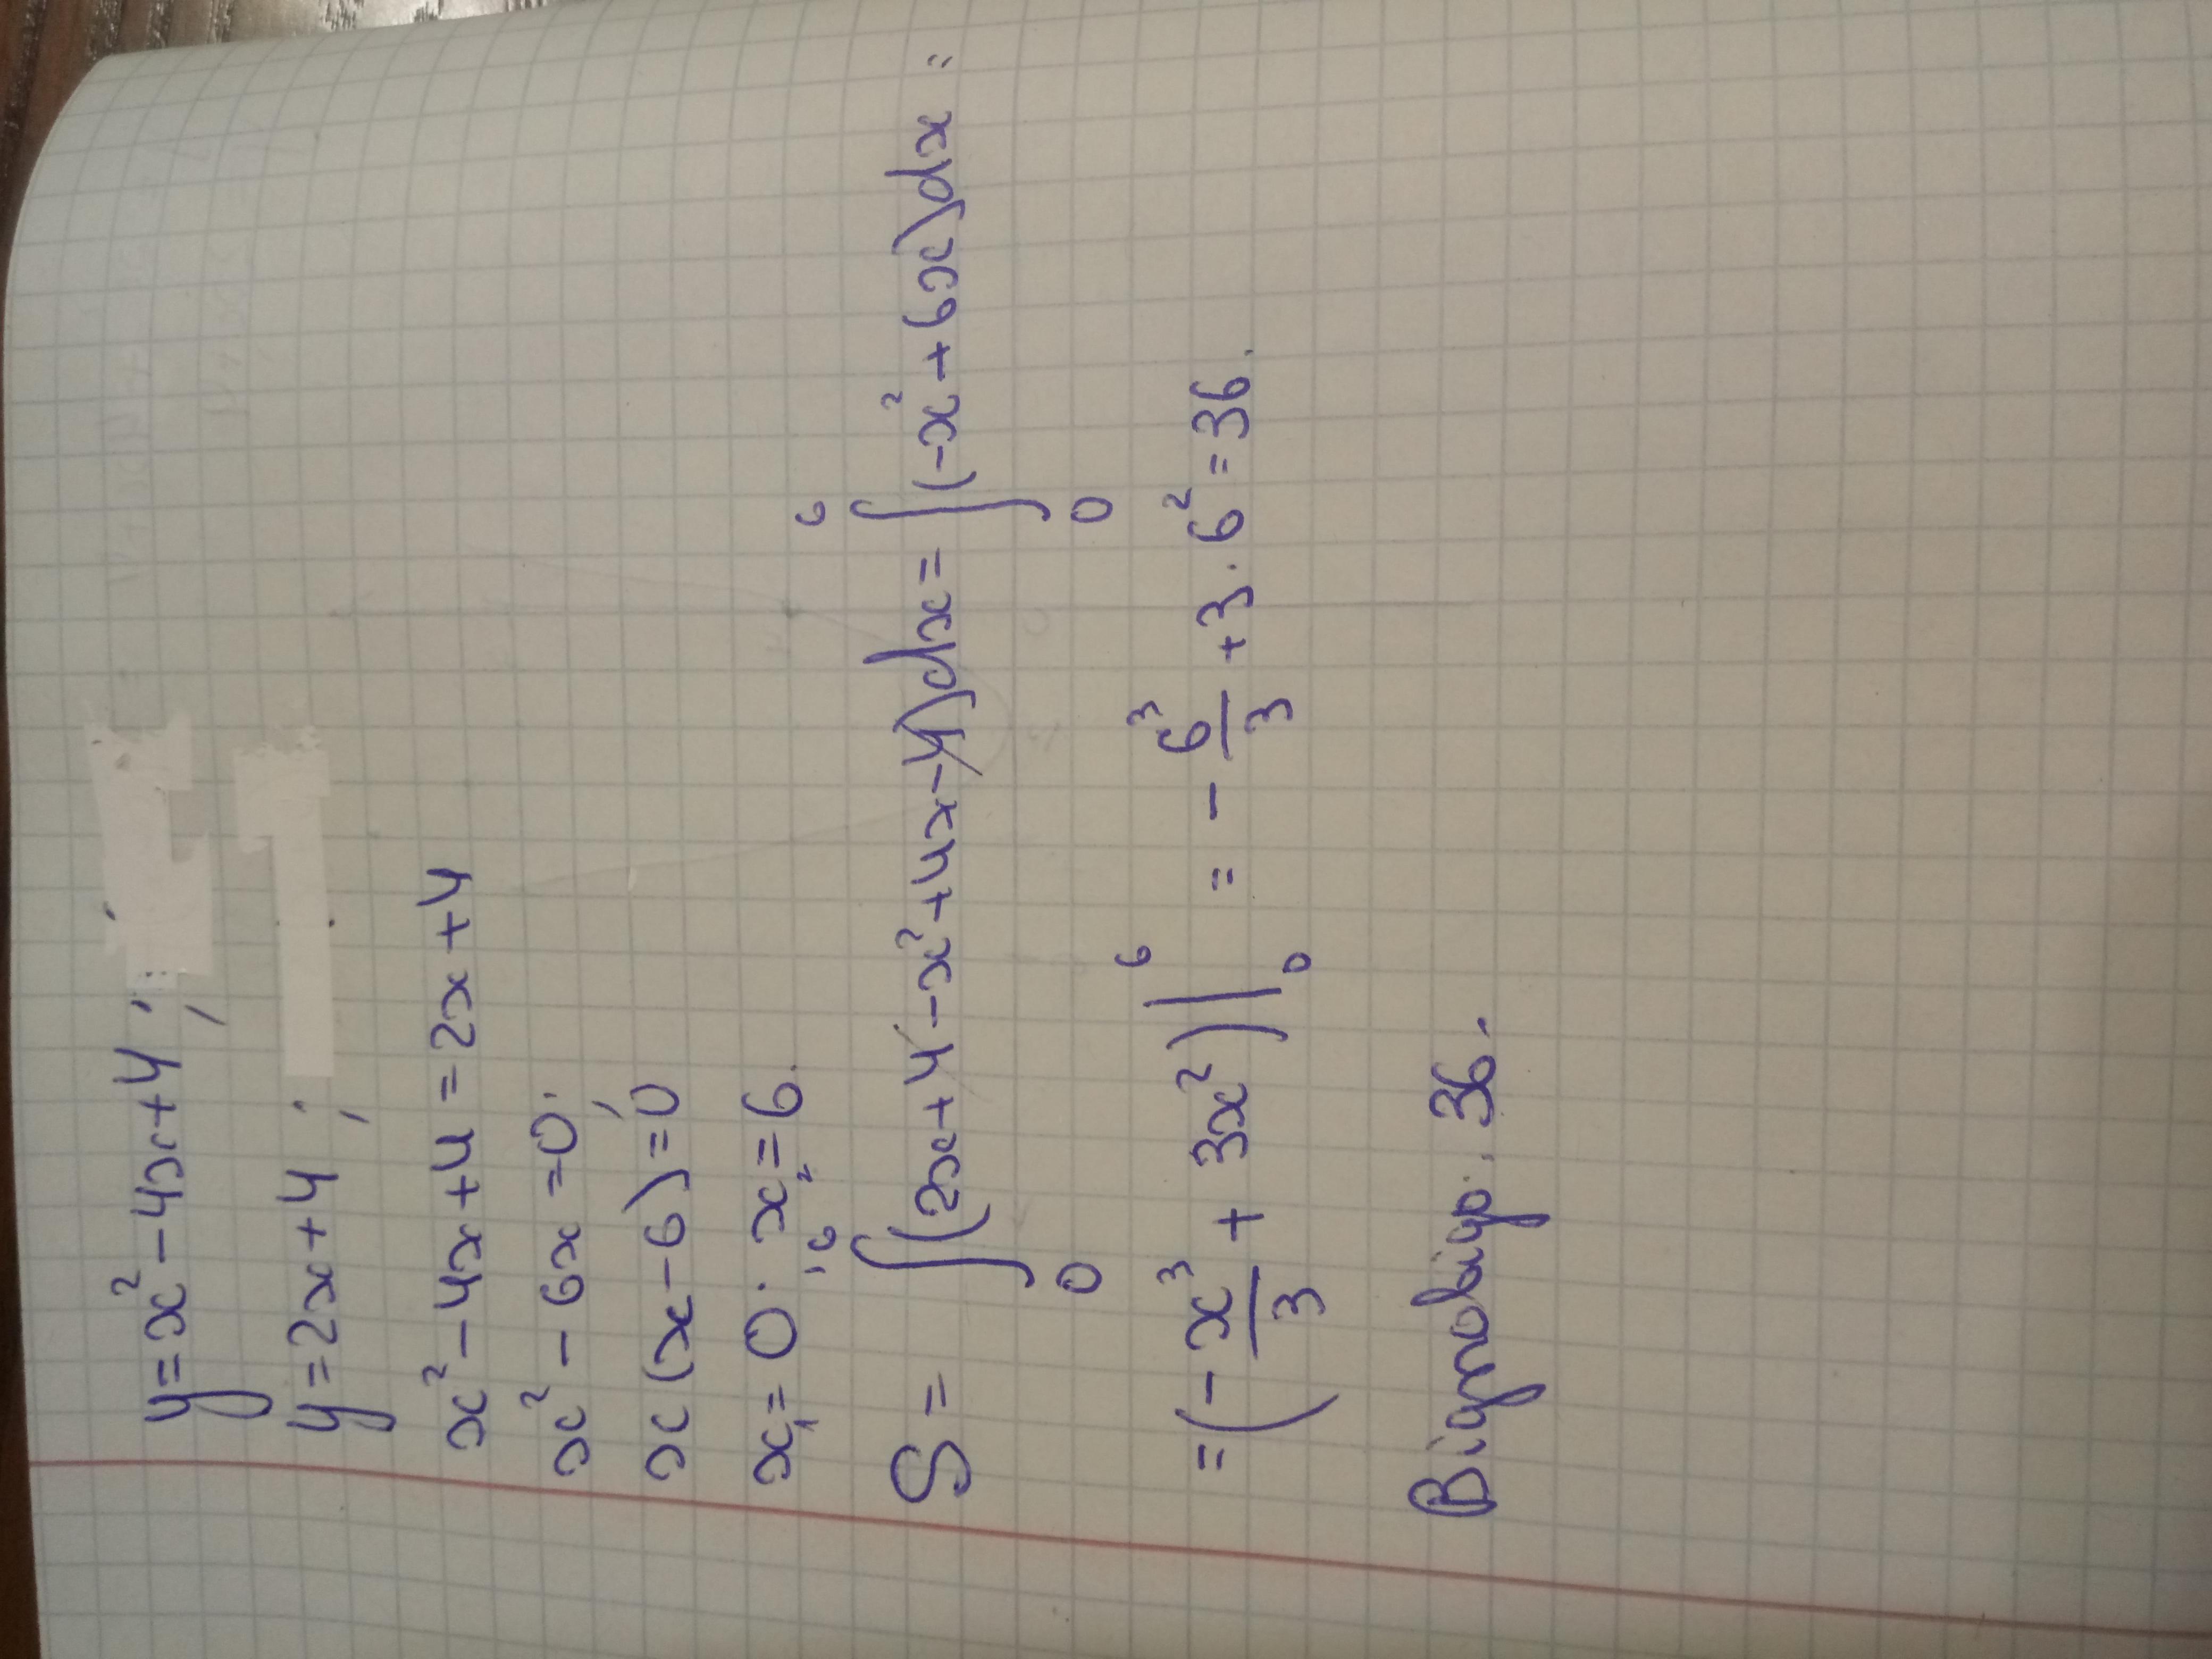 y = x² - 4x + 4;
y = 2x + 4;
x² - 4x + 4 = 2x + 4
x² - 6x = 0;
x(x - 6) = 0
x₁ = 0; x₂ = 6.
S = ∫₀⁶ (2x + 4 - x² + 4x - 4)dx = ∫₀⁶ (-x² + 6x)dx =
= (-x³/3 + 3x²)|₀⁶ = -6³/3 + 3 · 6² = 36.
Відповідь: 36.